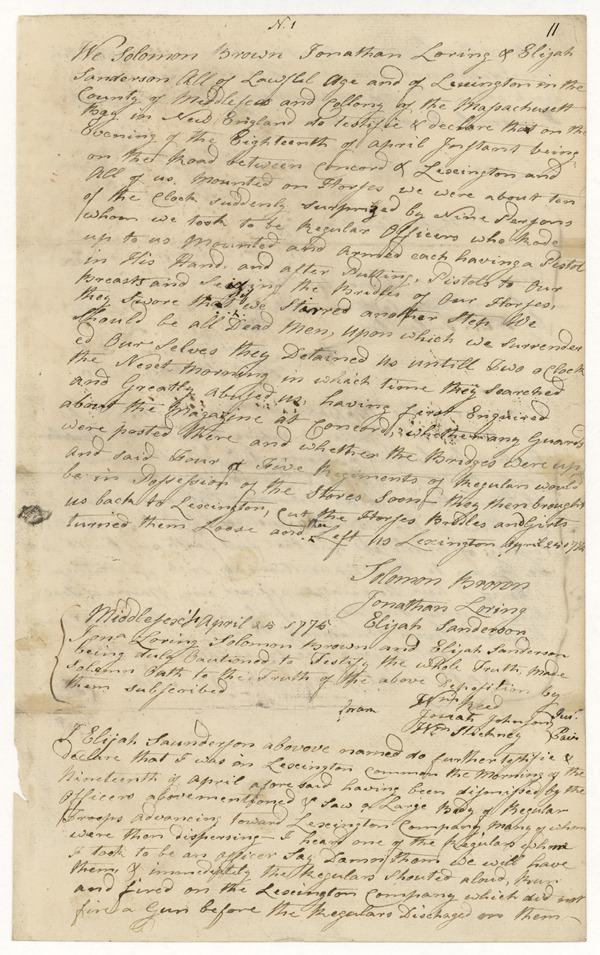 N. 1
11
We Solomon Brown Jonathan Loring & Elijah
Sanderson All of Lawful Age and of Lexington in the
County of Middlesex and Collony of the Massachusett
Bay in New England do testifie & declare that on the
Evening of the Eighteenth of April Instant being
on the Road between Concord & Lexington and
All of us mounted on Horses we were about ten
of the Clock suddenly surprized by Nine Persons
whom we took to be Regular Officers who Rode
up to us mounted and Armed each having a Pistol
in His Hand and after Putting Pistols to Our
Breasts and Seizing the Bridles of Our Horses,
they Swore that if we Stirred another Step We
should be all Dead men, upon which we surrender
ed Our Selves they Detained us untill Two oClock
the Next morning in which time they searched
and Greatly abused us, having first Enquired
about the Magazine at Concord, whether any Guards
were posted there and whether the Bridges were up
and said Four or Five Regiments of Regulars would
be in Possession of the Stores soon they then brought
us back to Lexington, Cut the Horses Bridles and Girts
turned them Loose and then Left us Lexington April 25 1775
Solomon Brown
Jonathan Loring
Elijah Sanderson
Middlesex ss April 25 1775
Jona Loring Solomon Brown and Elijah Sanderson
being duly Cautioned to Testify the whole Truth, made
Solemn Oath to the Truth of the above Deposition by
them subscribed
Coram
Wm Reed
Josiah Johnson Jus.
Wm Stickney Pacis
I Elijah Saunderson abovove named do further testifie &
declare that I was on Lexington Common the Morning of the
Nineteenth of April aforesaid having been dismissed by the
Officers abovementioned & Saw a Large Body of Regular
Troops advancing toward Lexington Company, Many of whom
were then dispersing I heard one of the Regulars whom
I took to be an officer Say Damn them we will have
them, & immediately the Regulars Shouted aloud, Run
and fired on the Lexington Company which did not
fire a Gun before the Regulars Discharged on them